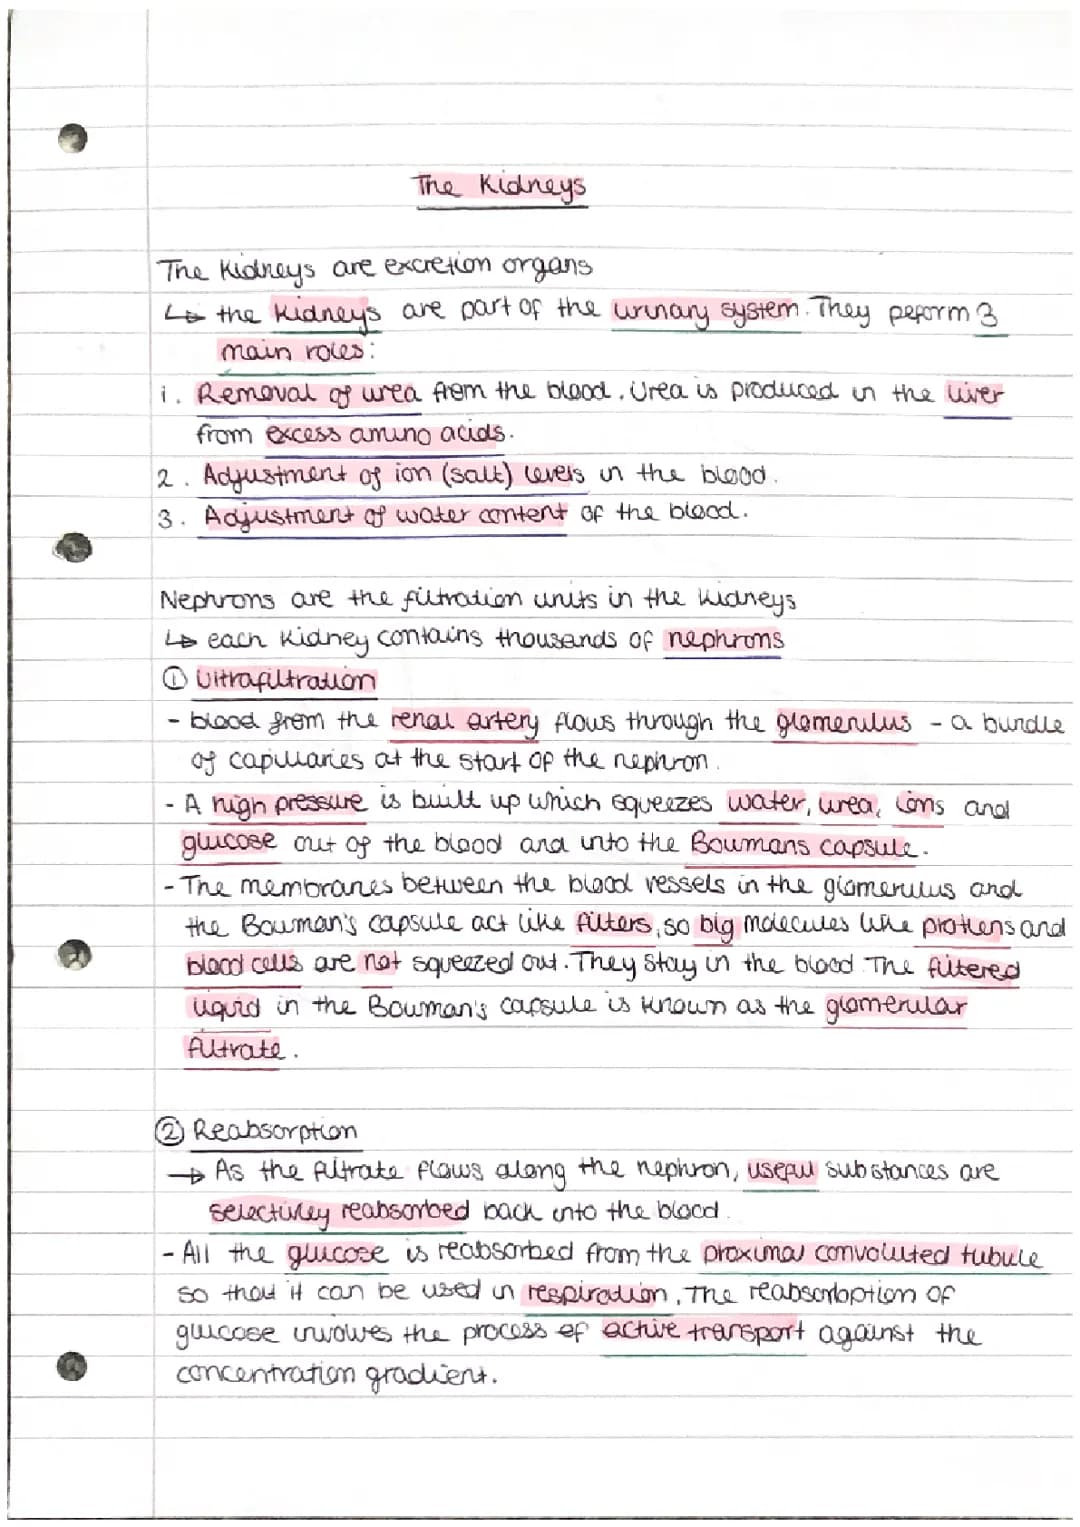 The Kidneys
The Kidneys are excretion organs
↳ the Kidneys are part of the urinary system. They peform 3
main roles:
1. Removal of urea from the blood. Urea is produced in the liver
from excess amino acids.
2. Adjustment of ion (salt) levels in the blood.
3. Adjustment of water content of the blood.
Nephrons are the filtration units in the kidneys
↳ each kidney contains thousands of nephrons
① Ultrafiltration
- blood from the renal artery flows through the glomerulus - a bundle
of capillaries at the start of the nephron.
- A high pressure is built up which squeezes water, urea, ions and
glucose out of the blood and into the Bowmans capsule.
- The membranes between the blood vessels in the glomerulus and
the Bowman's capsule act like filters, so big molecules like protiens and
blood cells are not squeezed out. They stay in the blood. The filtered
liquid in the Bowman's capsule is known as the glomerular
filtrate.
② Reabsorption
→ As the filtrate flows along the nephron, useful substances are
selectivley reabsorbed back into the blood.
- All the glucose is reabsorbed from the proximal convoluted tubule
so that it can be used in respiration. The reabsorbption of
glucose involves the process of active transport against the
concentration gradient.